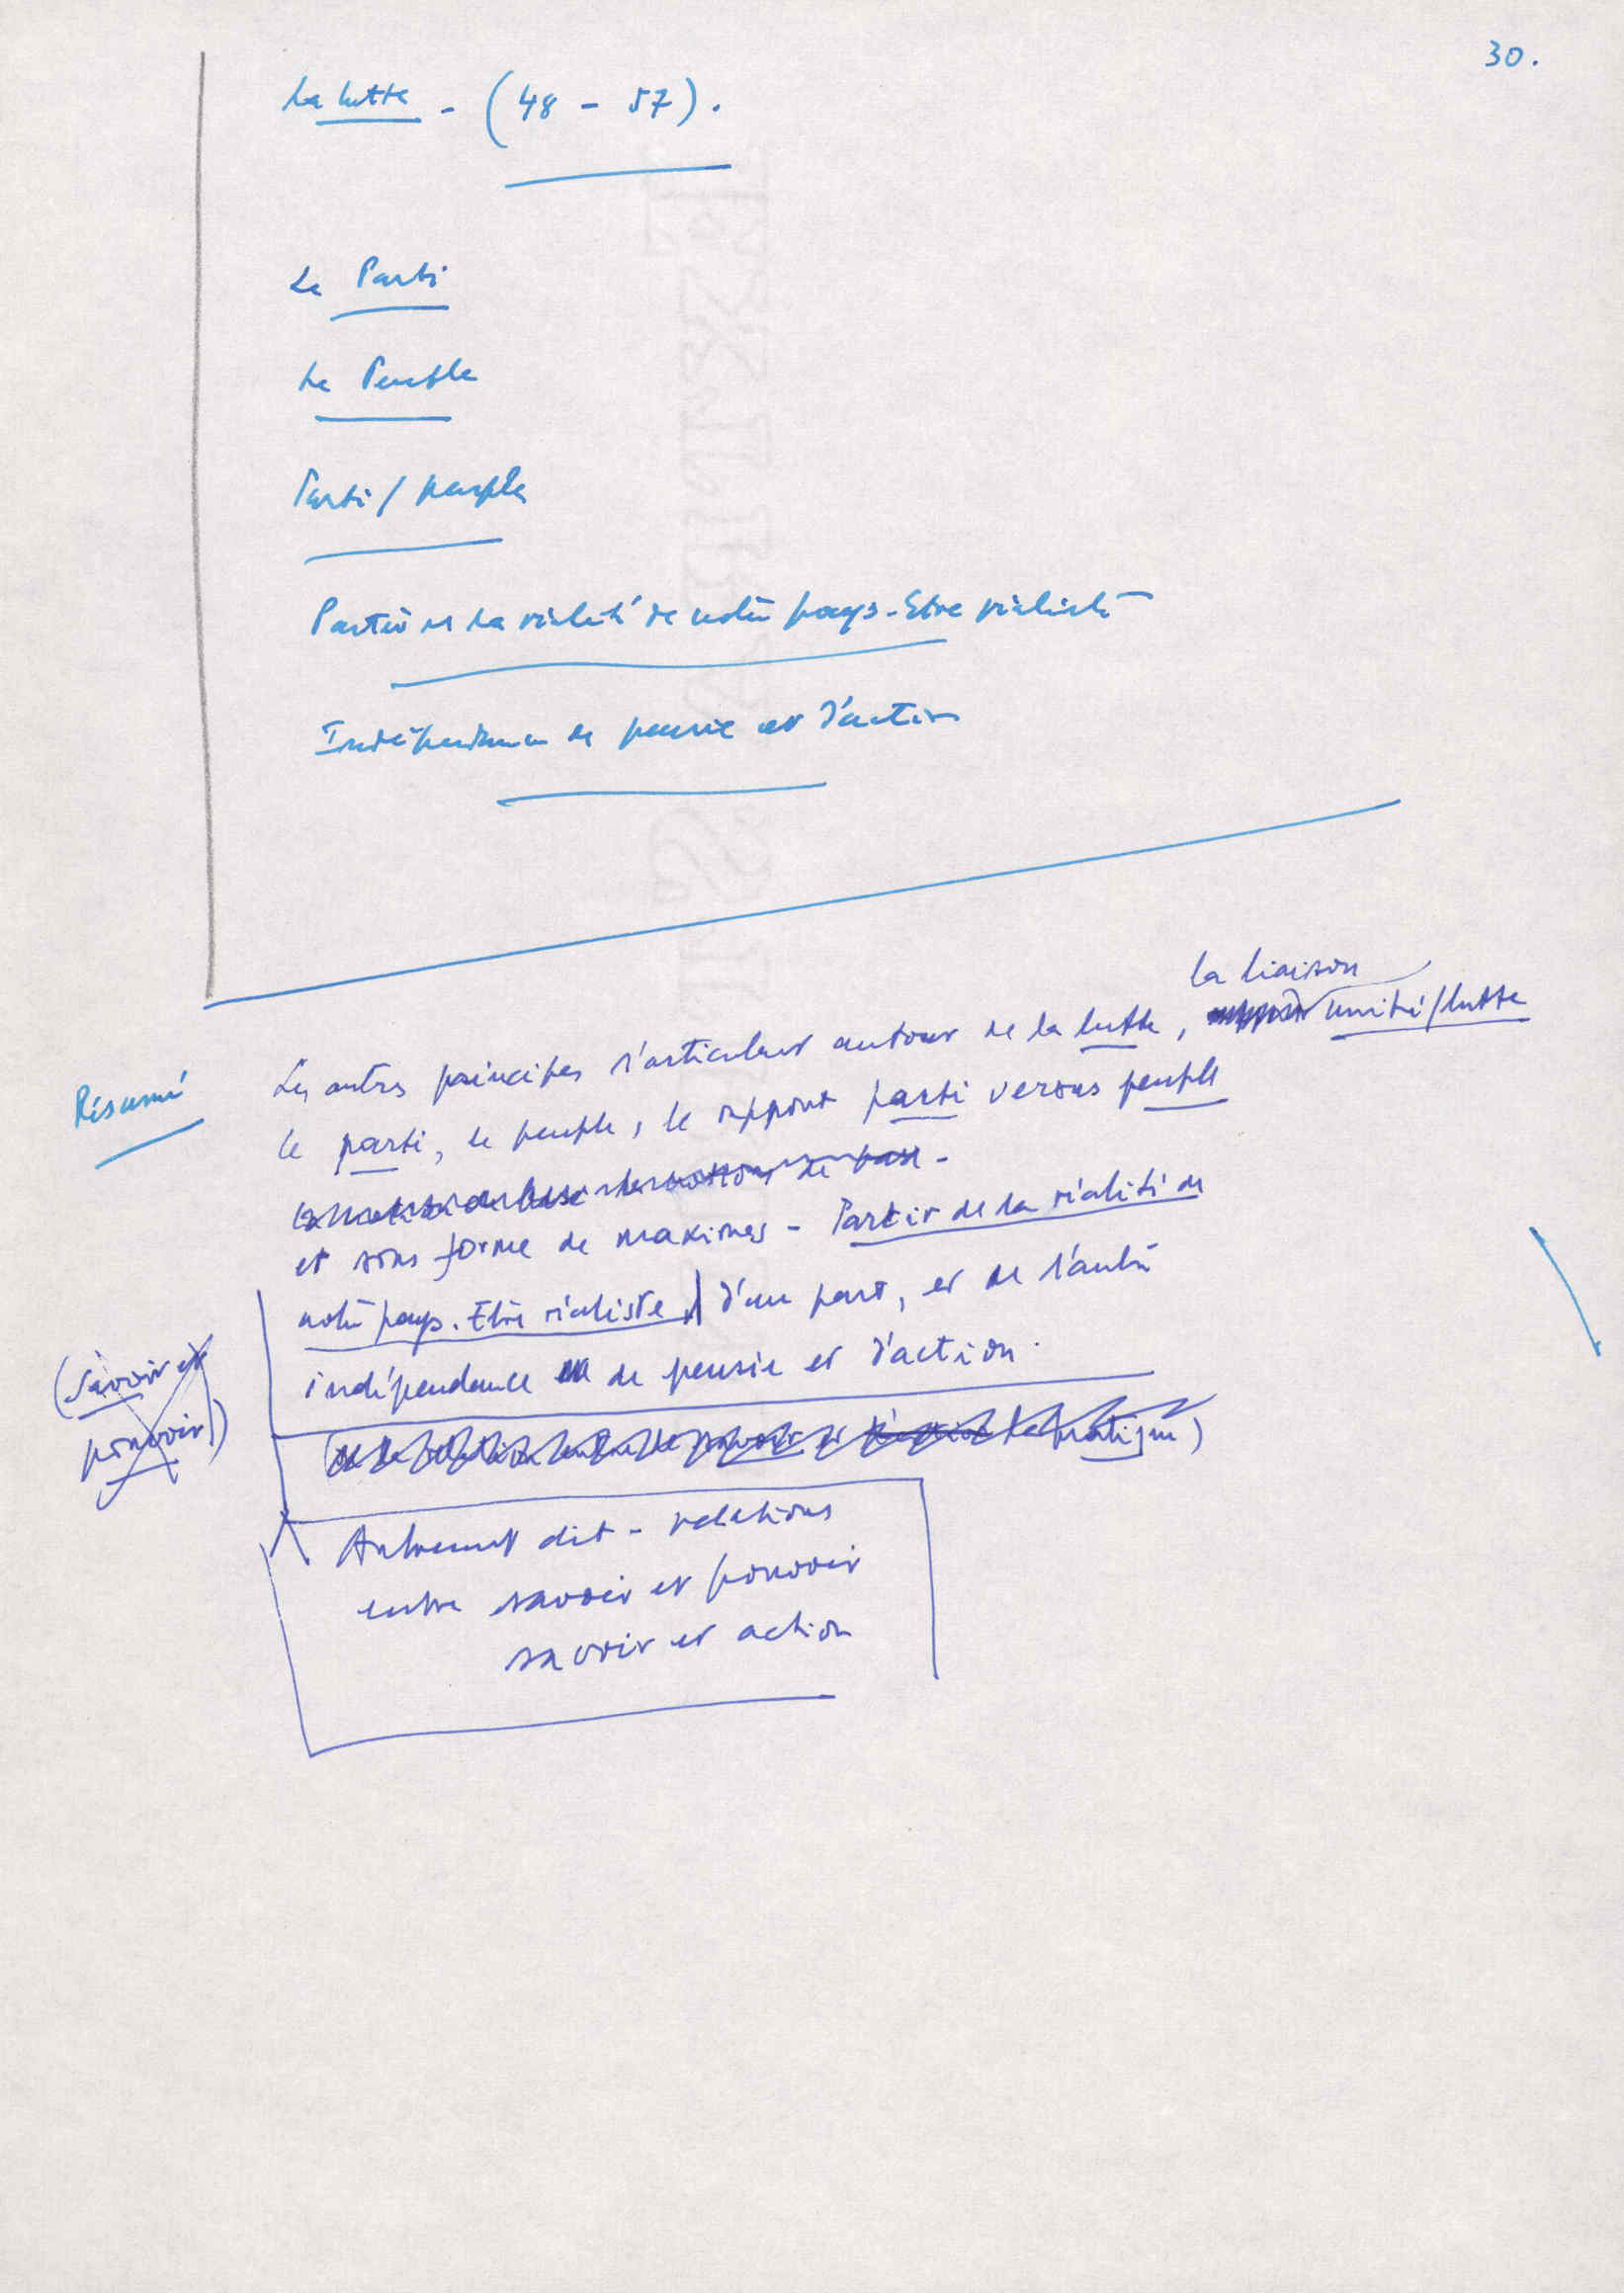 30.
La lutte - (48 - 57).
Le Parti
Le Peuple
Parti / peuple
Partir de la réalité de notre pays - Etre réaliste
Indépendance de pensée et d'action
la liaison
Résumé
Les autres principes s'articulent autour de la lutte, rapport unité/lutte
le parti, le peuple, le rapport parti versus peuple
de base -
et sous forme de maximes - Partir de la réalité de
notre pays. Etre réaliste, d'une part, et de l'autre
indépendance de pensée et d'action.
(Savoir et
pouvoir)
la pratique)
Autrement dit - relations
entre savoir et pouvoir
savoir et action